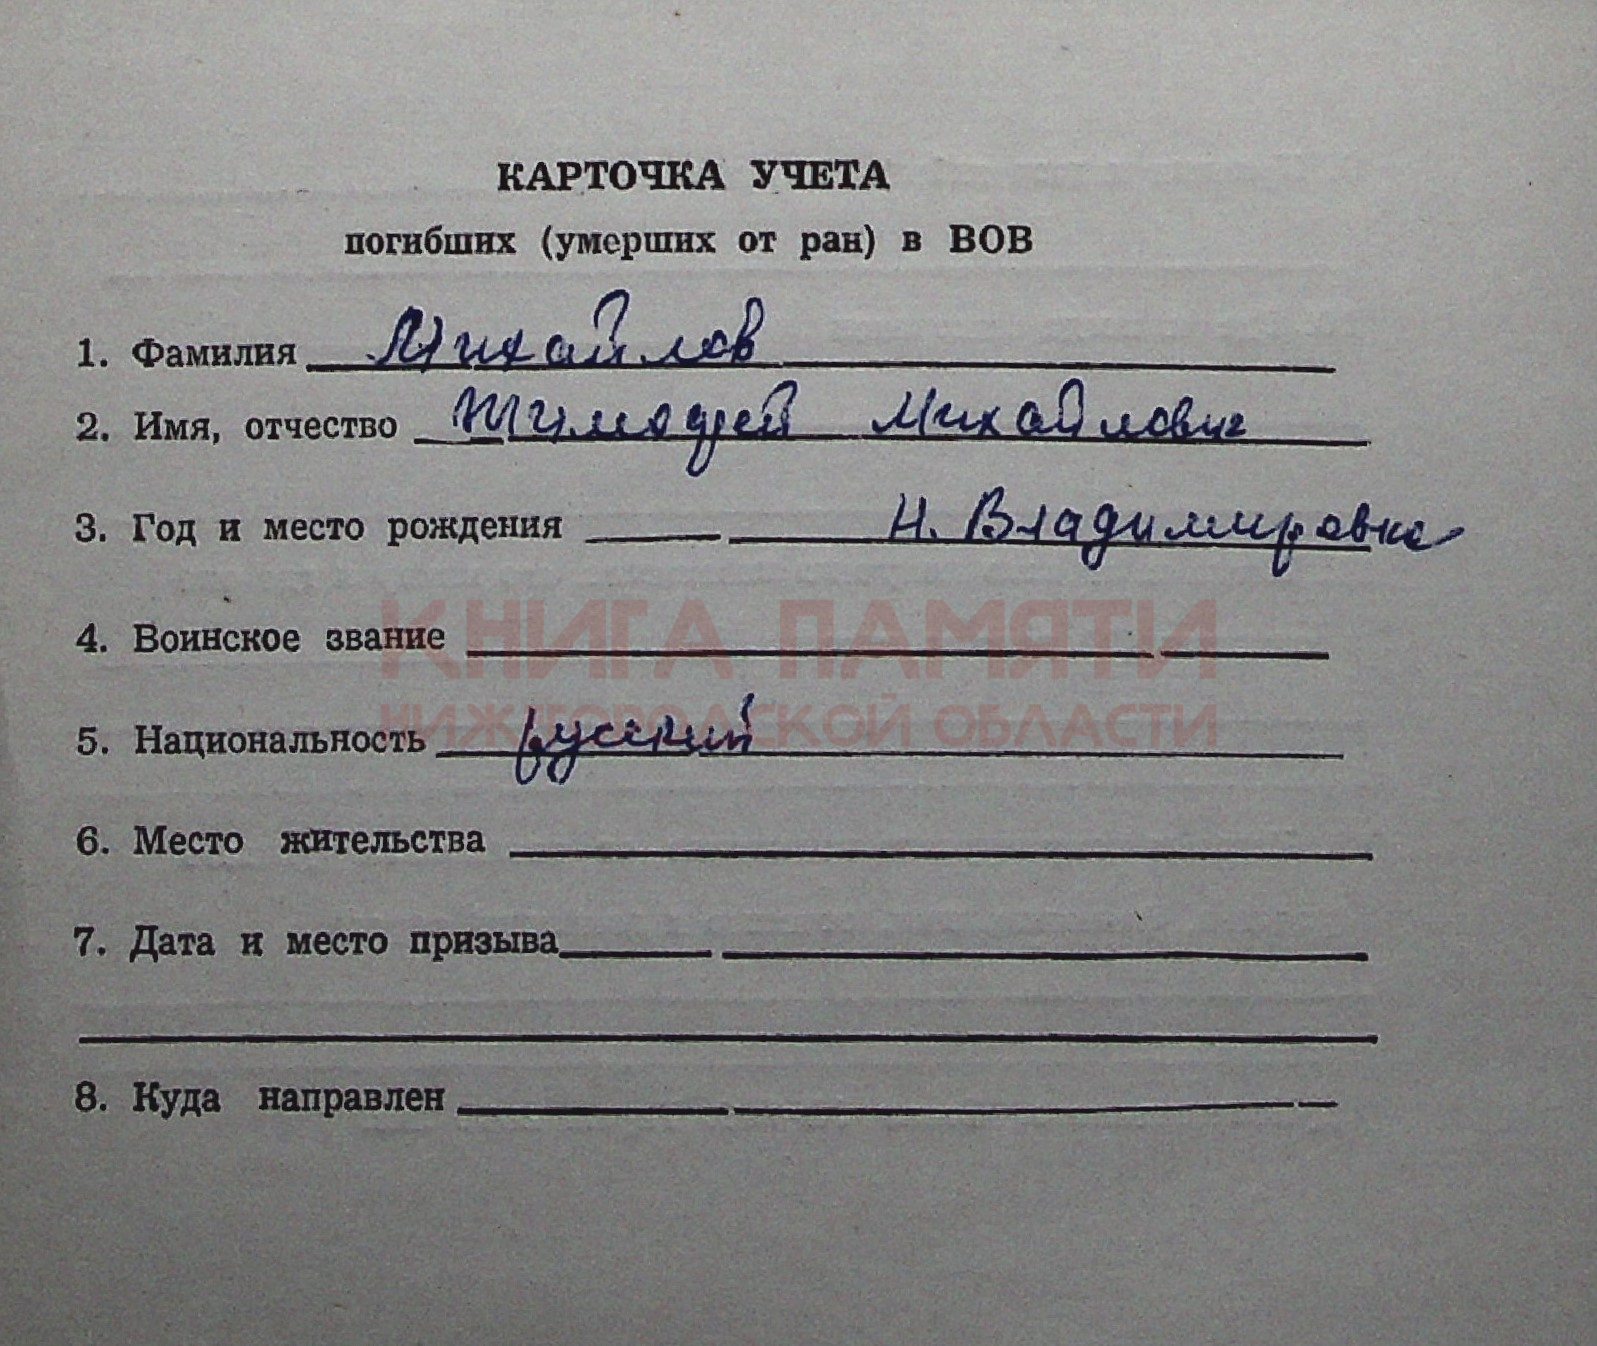 КАРТОЧКА УЧЕТА
погибших (умерших от ран) в ВОВ
1. Фамилия Михайлов
2. Имя, отчество Тимофей Михайлович
3. Год и место рождения Н. Владимировка
4. Воинское звание
КНИГА ПАМЯТИ
НИЖЕГОРОДСКОЙ ОБЛАСТИ
5. Национальность русский
6. Место жительства
7. Дата и место призыва
8. Куда направлен